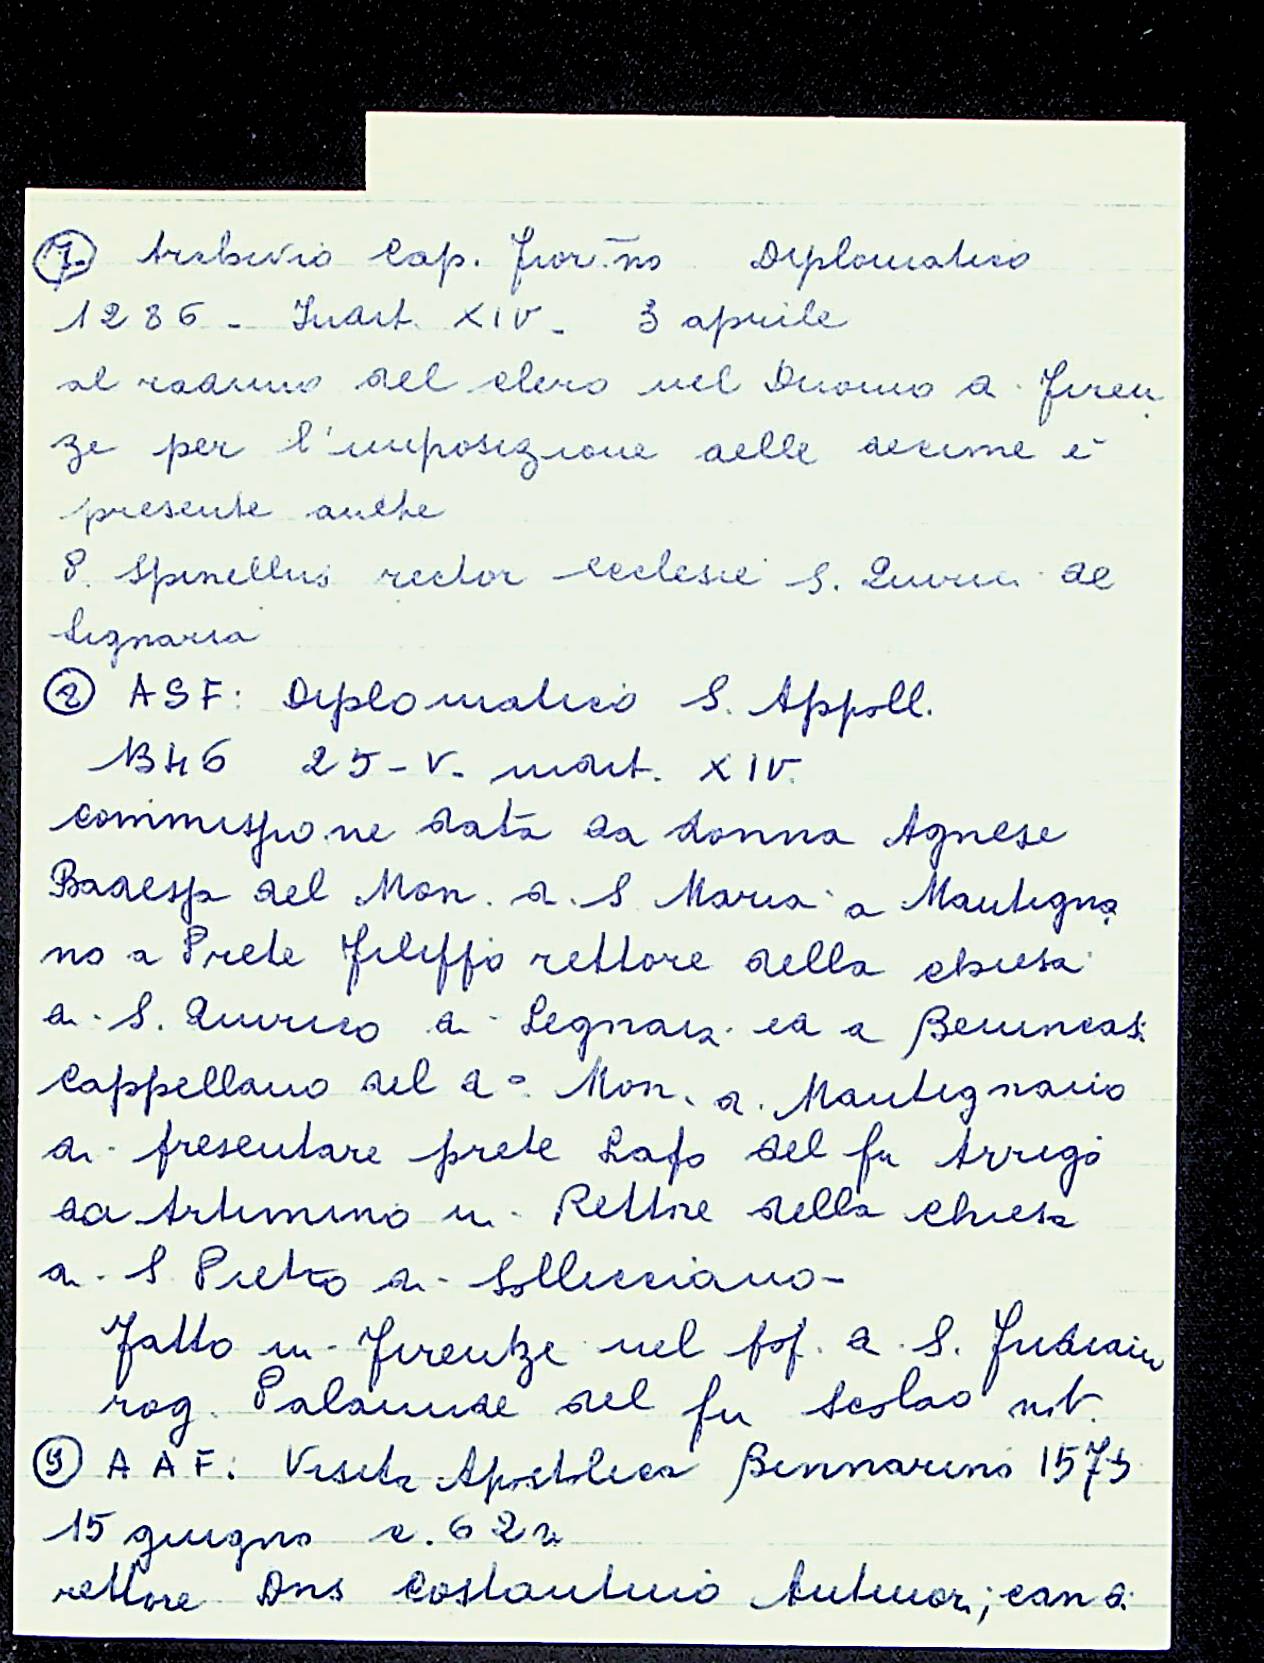 1. Archivio Cap. Fior.no Diplomatico
1286 - Indict. XIV - 3 aprile
al raduno del clero nel Duomo di Firen
ze per l'imposizione delle decime è
presente anche
P. Spinellus rector ecclesie S. Quirici de
Legnaria
2 ASF: Diplomatico S. Appoll.
1346 25-V- indict. XIV.
commissione data da donna Agnese
Badessa del Mon. di S Maria a Mantigna
no a Prete Filippo rettore della chiesa
di S. Quirico di Legnaia ed a
Cappellano del d° Mon. di Mantignano
di presentare prete Lapo del fu Arrigo
da Artimino in Rettore della chiesa
di S Pietro di Sollicciano -
Fatto in Firenze nel pop. di S. Frediano
rog. del fu Scolao not.
AAF: Visita Apostolica 1575
15 giugno c. 62
rettore Dns Costantino Antinori; can di